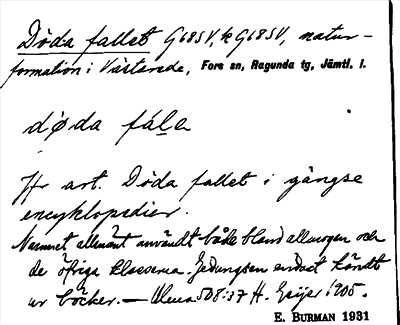 Döda fallet G68SV, k G68SV, natur-
formation i Västerede, Fors sn, Ragunda tg, Jämtl. l.
dø̀da fála
Jfr art. Döda fallet i gångse
encyklopedier.
Namnet allmänt användt både bland allmogen och
de öfriga klasserna. Gedungsen endast kändt
ur böcker. — Ulma 508:37 H. Geijer 1905.
E. BURMAN 1931